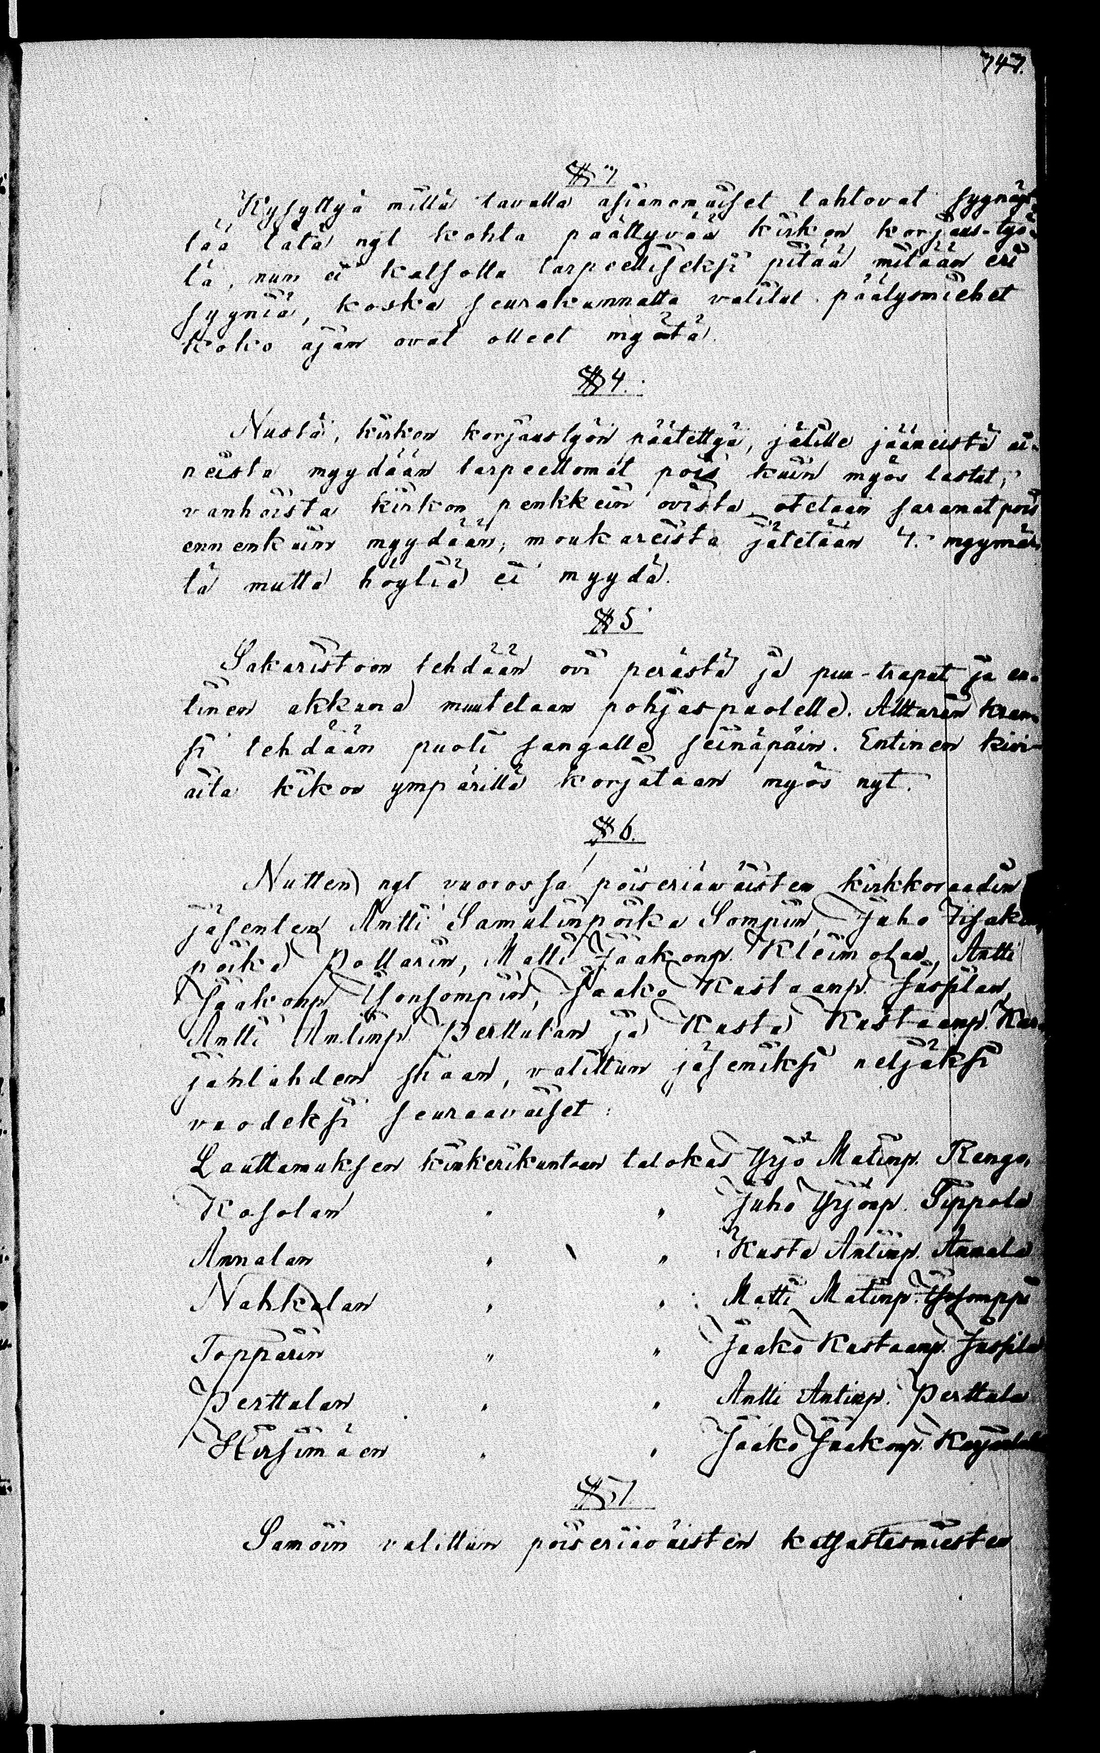 747.
§ 3
Kysyttyä millä tavalla asianomaiset tahtovat syynäyt-
tää tätä nyt kohta päättyvää kirkon korjaus-työ-
tä, niin ei katsottu tarpeelliseksi pitää mitään eri
syyniä, koska seurakunnalta valitut päälysmiehet
koko ajan ovat olleet myötä.
§ 4.
Niistä, kirkon korjaustyön päätettyä, jälille jääneistä ai-
neista myydään tarpeettomat pois kuin myös lastut;
vanhoista kirkon penkkein ovista otetaan saranat pois
ennenkuin myydään; moukareista jätetään 4. myymät-
tä mutta höyliä ei myydä.
§ 5
Sakaristoon tehdään ovi perästä ja puu-traput ja en-
tinen akkuna muutetaan pohjaspuolelle. Alttarin kran-
si tehdään puoli sangalle seinäpäin. Entinen kivi-
aita kikon ympärillä korjataan myös nyt.
§ 6.
Nutten nyt vuorossa poiseriäwäisten kirkkoraadin
jäsenten Antti Samulinpoika Sompin, Juho Iisakin
poika Pollarin, Matti Jaakonp. Kleimolan, Antti
Jaakonp Isonsompin, Jaako Kustaanp. Jussilan,
Antti Antinp. Perttulan ja Kusta Kustaanp. Kar-
janlahden siaan, valittiin jäseniksi neljäksi
vuodeksi seuraavaiset:
Lauttamuksen kinkerikuntaan talokas Yrjö Matinp. Rengo,
Kosolan " " Juho Yrjönp. Tippola
Annalan " " Kusta Antinp. Annala
Nahkalan " " Matti Matinp. Isosomppi
Topparin " " Jaako Kustaanp. Jussila
Perttulan " " Antti Antinp. Perttula
Hirsimäen " " Jaako Jaakonp. Karjanlahti
§ 7.
Samoin valittiin poiseriäwäisten katsastusmiesten